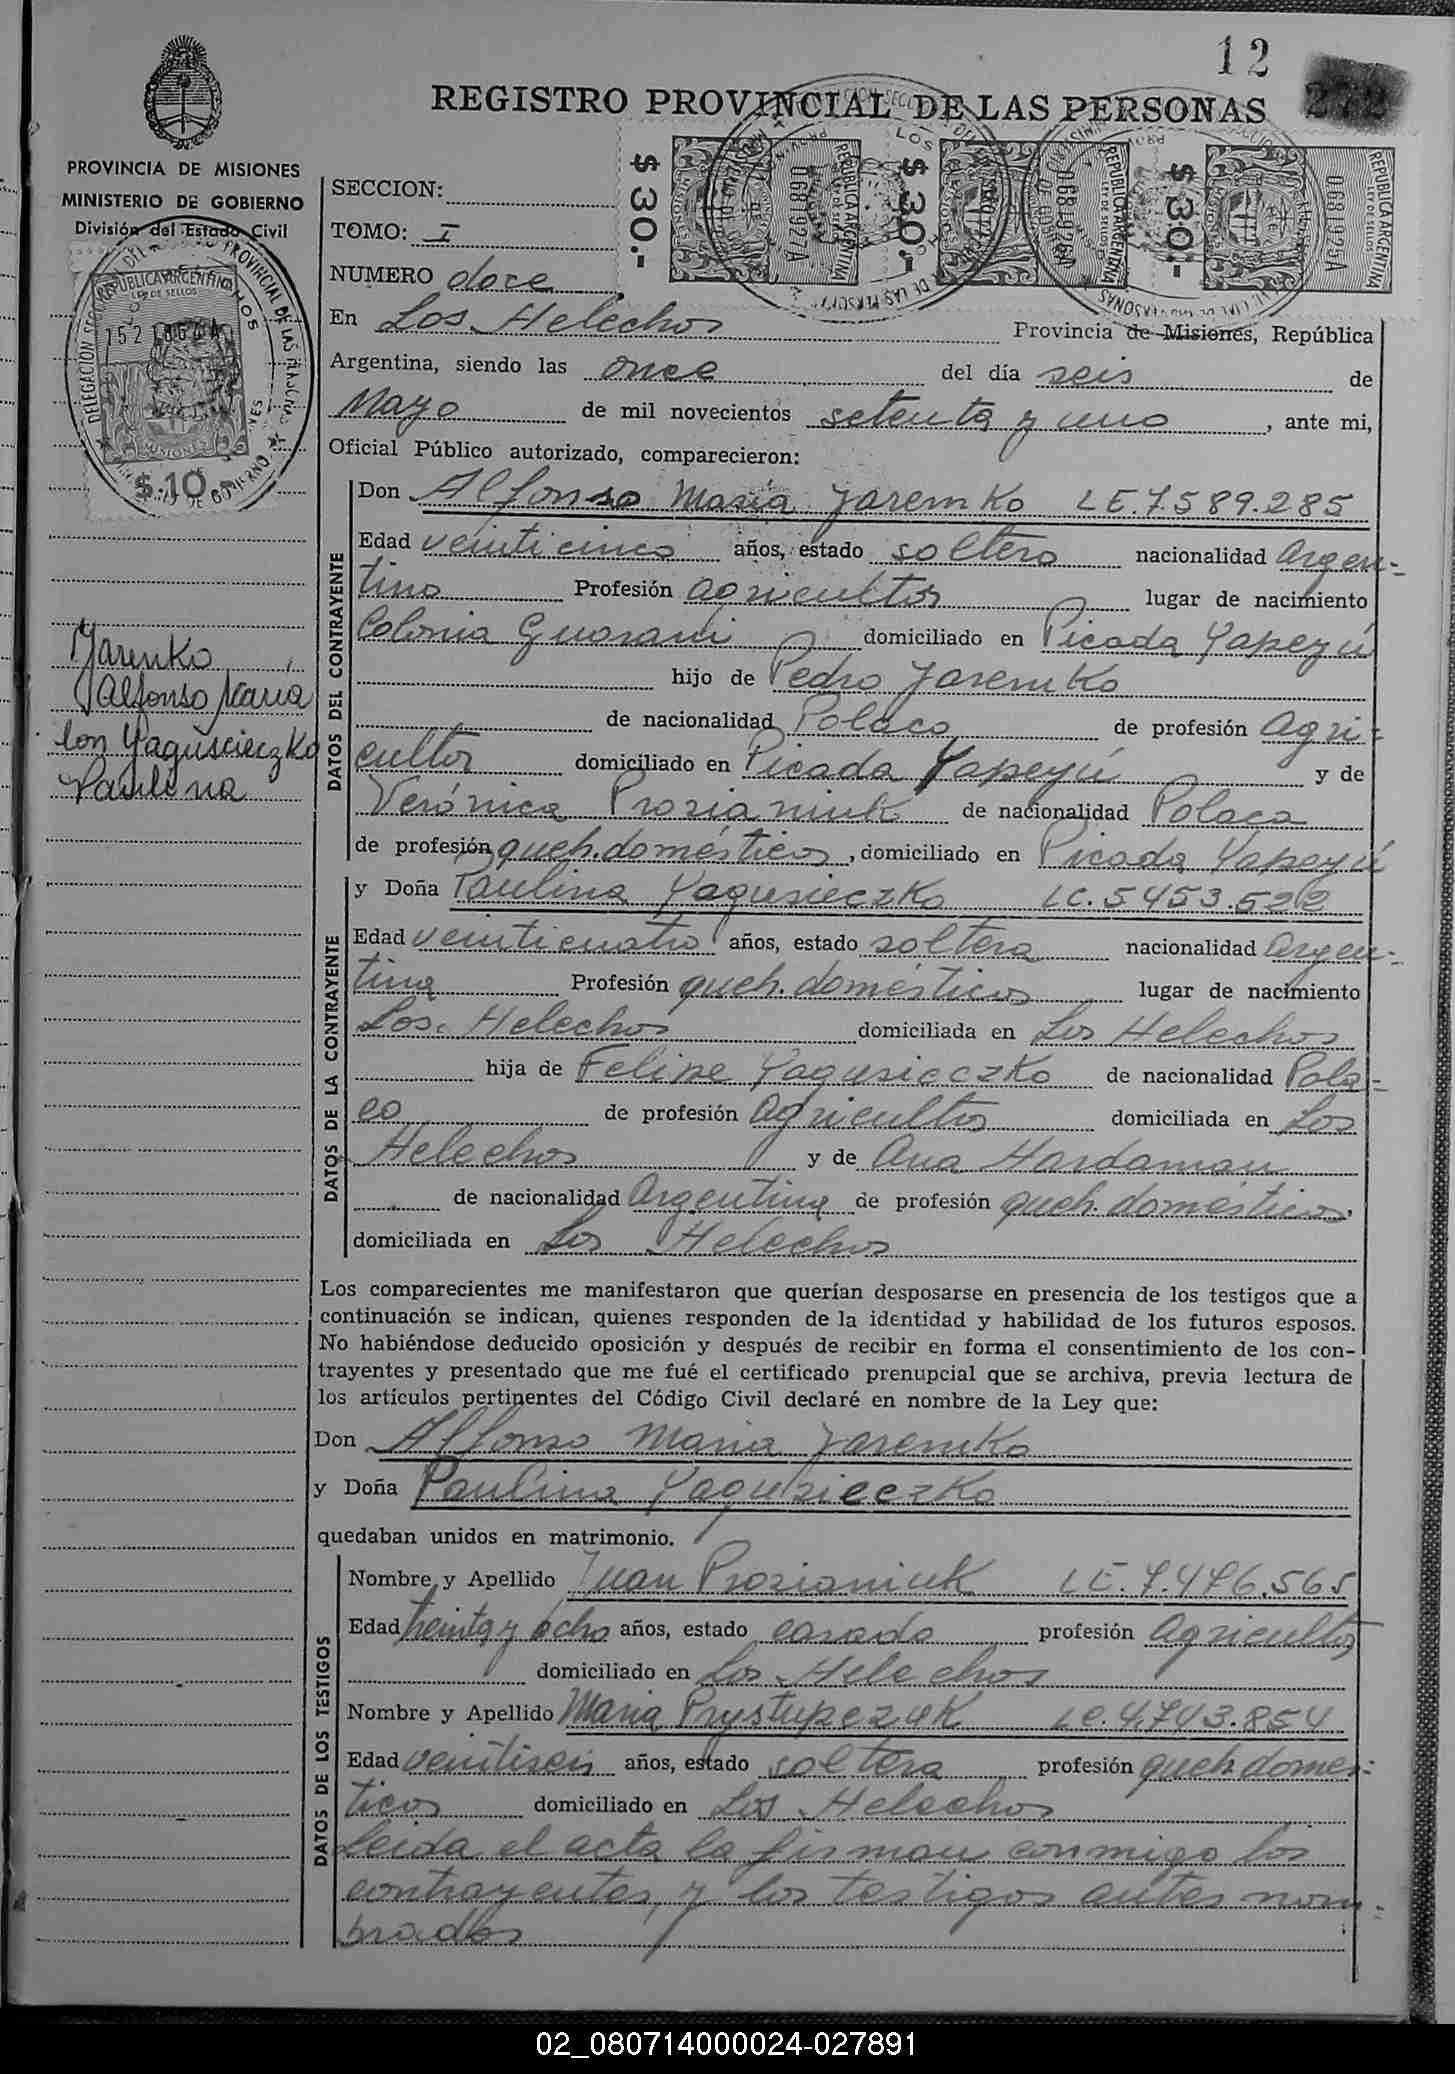 12
272
REGISTRO PROVINCIAL DE LAS PERSONAS
PROVINCIA DE MISIONES
MINISTERIO DE GOBIERNO
División del Estado Civil
REPUBLICA ARGENTINA
LEY DE SELLOS
MISIONES
$ 10.-
$ 30.-
0681927A
REPUBLICA ARGENTINA
LEY DE SELLOS
$ 30.-
0681926A
REPUBLICA ARGENTINA
LEY DE SELLOS
$ 30.-
0681925A
REPUBLICA ARGENTINA
LEY DE SELLOS
SECCION:
TOMO: I
NUMERO doce
En Los Helechos Provincia de Misiones, República
Argentina, siendo las once del día seis de
Mayo de mil novecientos setenta y uno, ante mi,
Oficial Público autorizado, comparecieron:
DATOS DEL CONTRAYENTE
Don Alfonso María Jaremko LE.7.589.285
Edad veinticinco años, estado soltero nacionalidad Argen-
tino Profesión agricultor lugar de nacimiento
Colonia Guaraní domiciliado en Picada Yapeyú
hijo de Pedro Jaremko
de nacionalidad Polaco de profesión Agri-
cultor domiciliado en Picada Yapeyú y de
Verónica Prozianiuk de nacionalidad Polaca
de profesión queh. domésticos, domiciliado en Picada Yapeyú
Jarenko
Alfonso Maria
Con Yaguscieczko
Paulina
DATOS DE LA CONTRAYENTE
y Doña Paulina Yagusieczko LC.5.453.522
Edad veinticuatro años, estado soltera nacionalidad Argen-
tina Profesión queh. domésticos lugar de nacimiento
Los Helechos domiciliada en Los Helechos
hija de Felipe Yagusieczko de nacionalidad Pola-
co de profesión Agricultor domiciliada en Los
Helechos y de Ana Hardaman
de nacionalidad Argentina de profesión queh. domésticos,
domiciliada en Los Helechos
Los comparecientes me manifestaron que querían desposarse en presencia de los testigos que a
continuación se indican, quienes responden de la identidad y habilidad de los futuros esposos.
No habiéndose deducido oposición y después de recibir en forma el consentimiento de los con-
trayentes y presentado que me fué el certificado prenupcial que se archiva, previa lectura de
los artículos pertinentes del Código Civil declaré en nombre de la Ley que:
Don Alfonso Maria Jaremko
y Doña Paulina Yagusieczko
quedaban unidos en matrimonio.
DATOS DE LOS TESTIGOS
Nombre y Apellido Juan Prozianiuk LE.7.476.565
Edad treinta y ocho años, estado casado profesión Agricultor
domiciliado en Los Helechos
Nombre y Apellido Maria Prystupczuk LC.4.743.854
Edad veintiseis años, estado soltera profesión queh. domés-
ticos domiciliado en Los Helechos
Leida el acta la firman conmigo los
contrayentes y los testigos antes nom-
brados
02_080714000024-027891